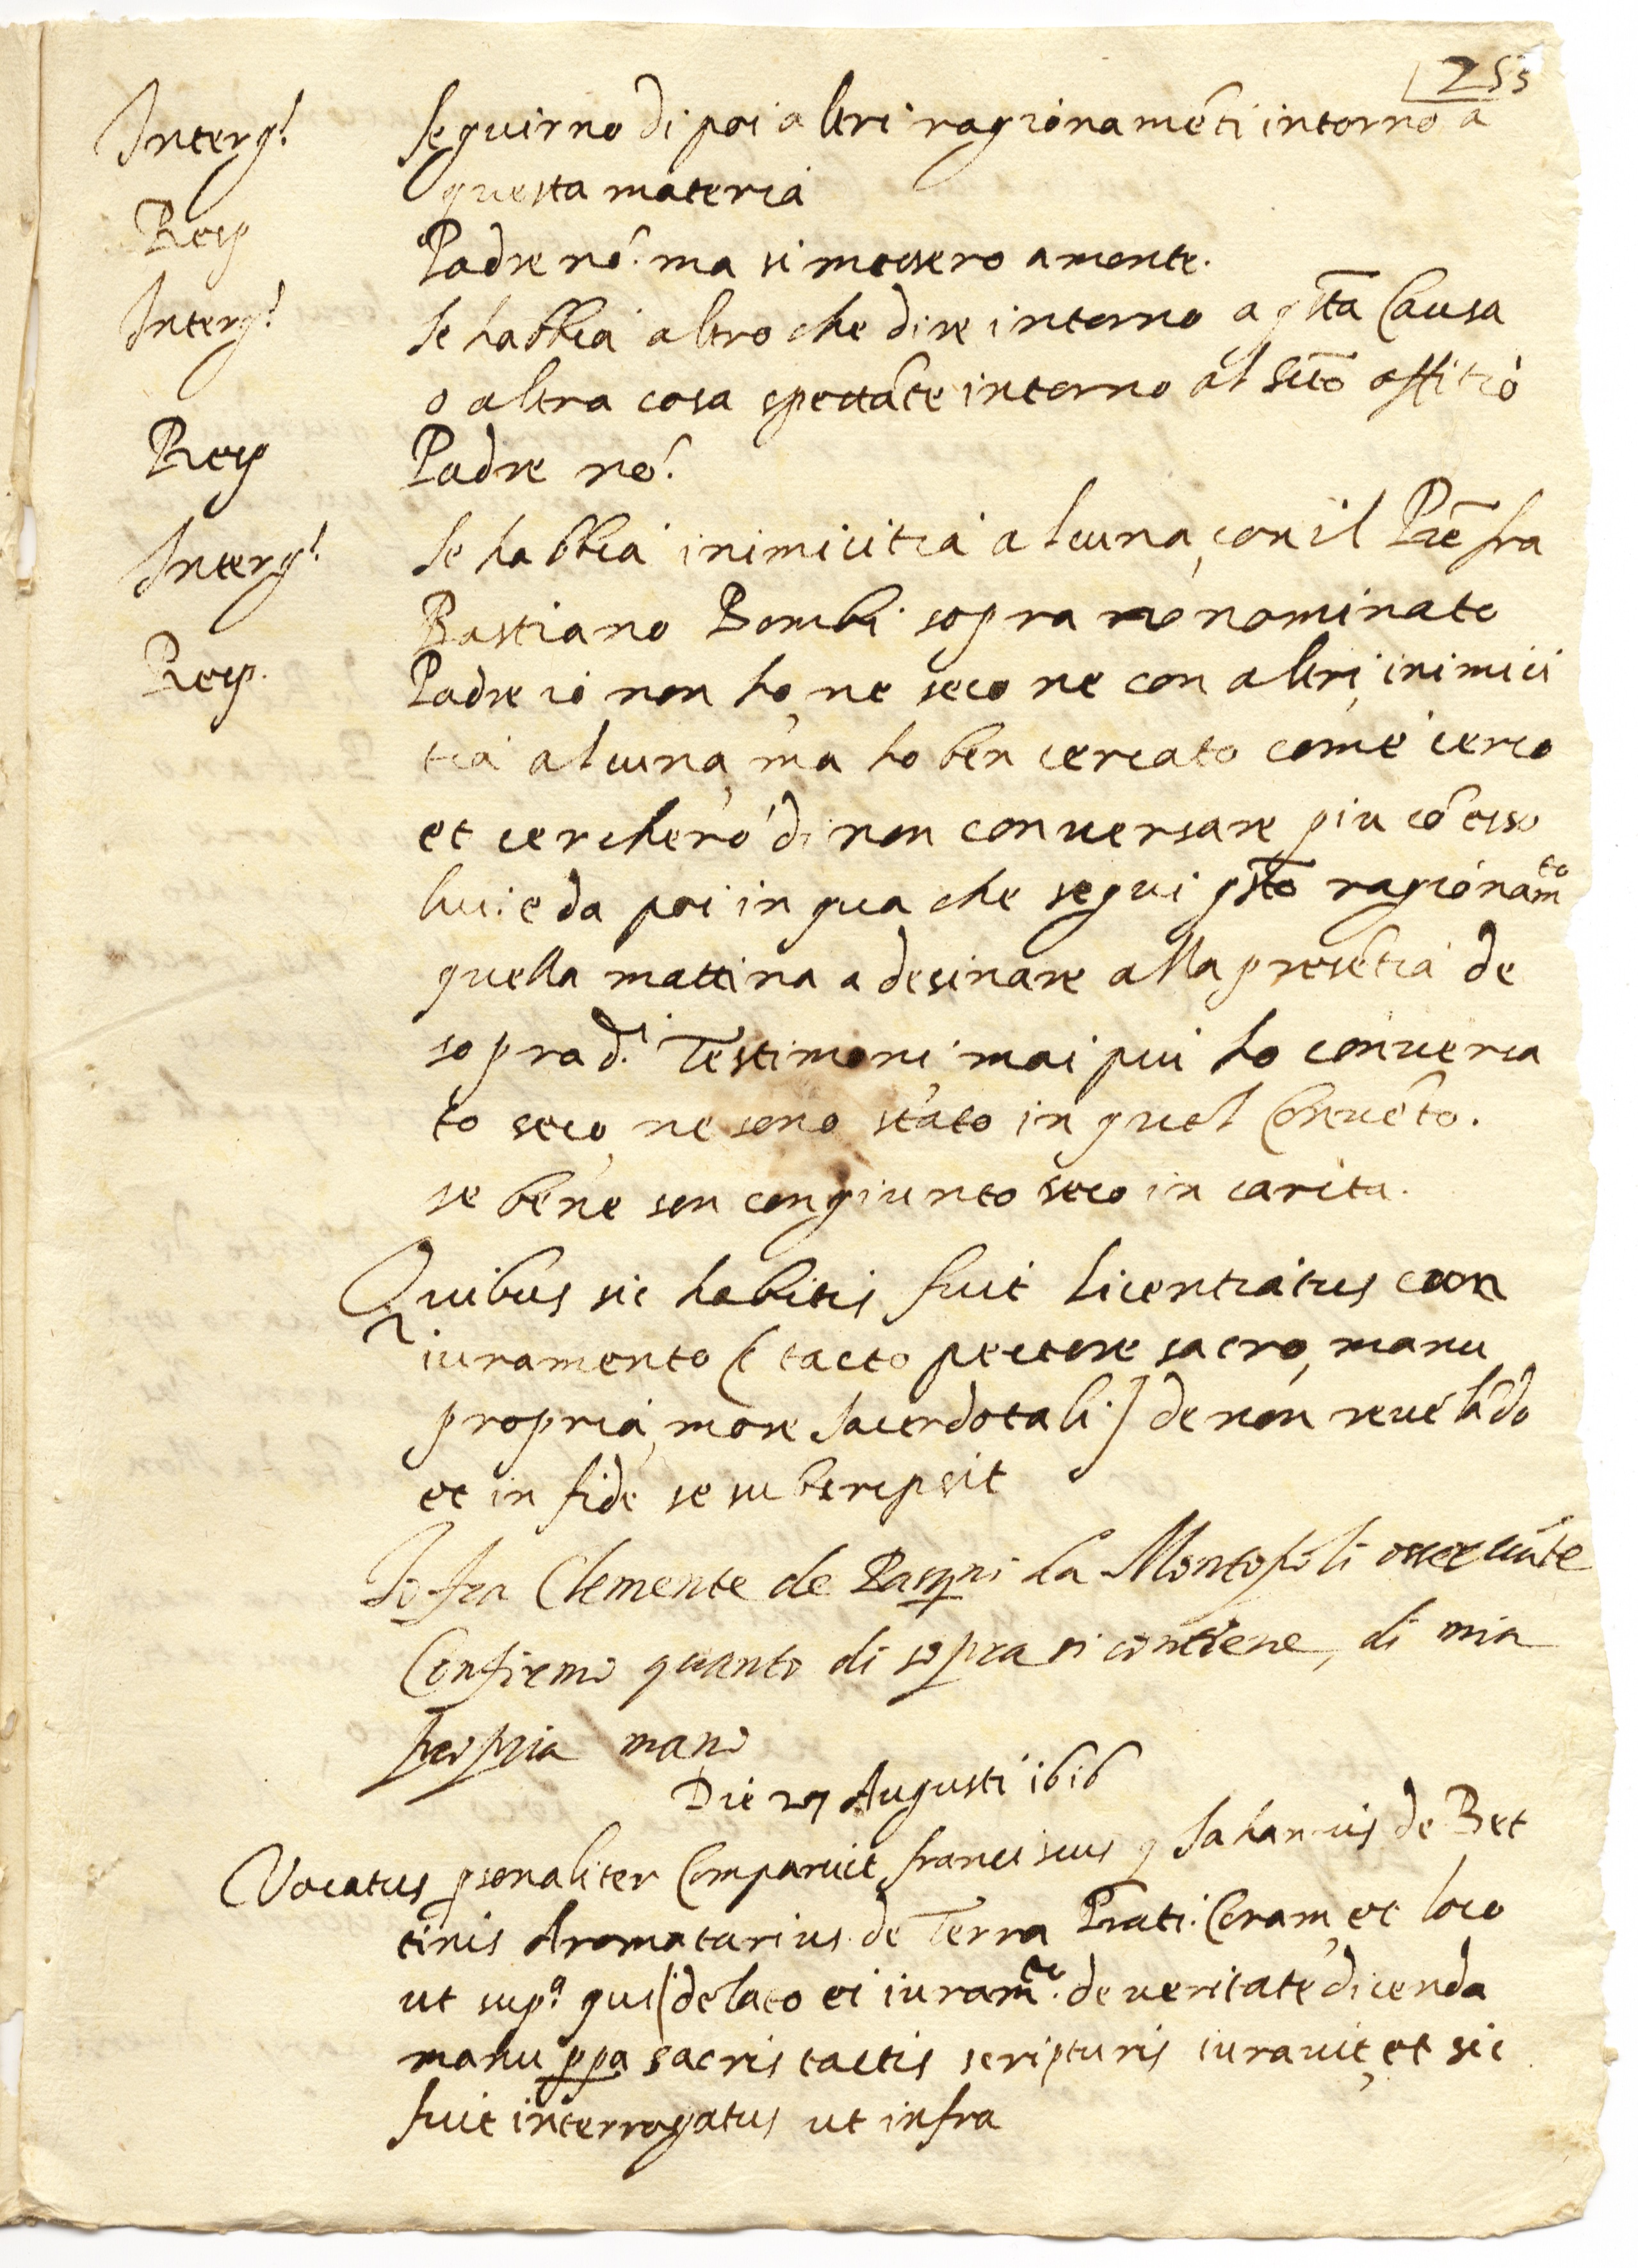 255
Interg.t seguirno di poi altri ragionamēti intorno a
questa materia
Resp Padre nō. ma si messero a mente.
Interg.t se habbia altro che dire intorno a q̄sta Causa
o altra cosa spettāte intorno al Sāto offitio
Resp Padre nō.
Interg.t se habbia inimicitia alcuna, con il P̄re fra
Bastiano Bombi sopra nominato
Resp. Padre io non ho, ne seco ne con altri, inimici
tia alcuna, ma ho ben cercato come cerco
et cercherò di non conversare piu cō esso
lui. e da poi in qua che segui q̄sto ragionam.to
quella mattina a desinare alla presētia de
soprad.i Testimoni, mai piu ho conversa
to seco, ne sono stato in quel Convēto.
se bene son congiunto seco in carita.
Quibus sic habitis fuit licentiatus cum
iuramento (tacto pectore sacro, manu
propria, more sacerdotali) de non revelādo
et in fidē se subscripsit
Io fra Clemente de da Montopoli osservāte
Confermo quanto di sopra si contiene, di mia
propria mano
Die 27 Augusti 1616
Vocatus p̱sonaliter Comparuit, franciscus q Iohannis de Bet
tinis Aromatarius de Terra Prati. Coram, et loco
ut sup.a qui (delato ei iuram.to de veritate dicenda
manu p̱p̱a sacris tactis scripturis iuravit, et sic
fuit interrogatus ut infra